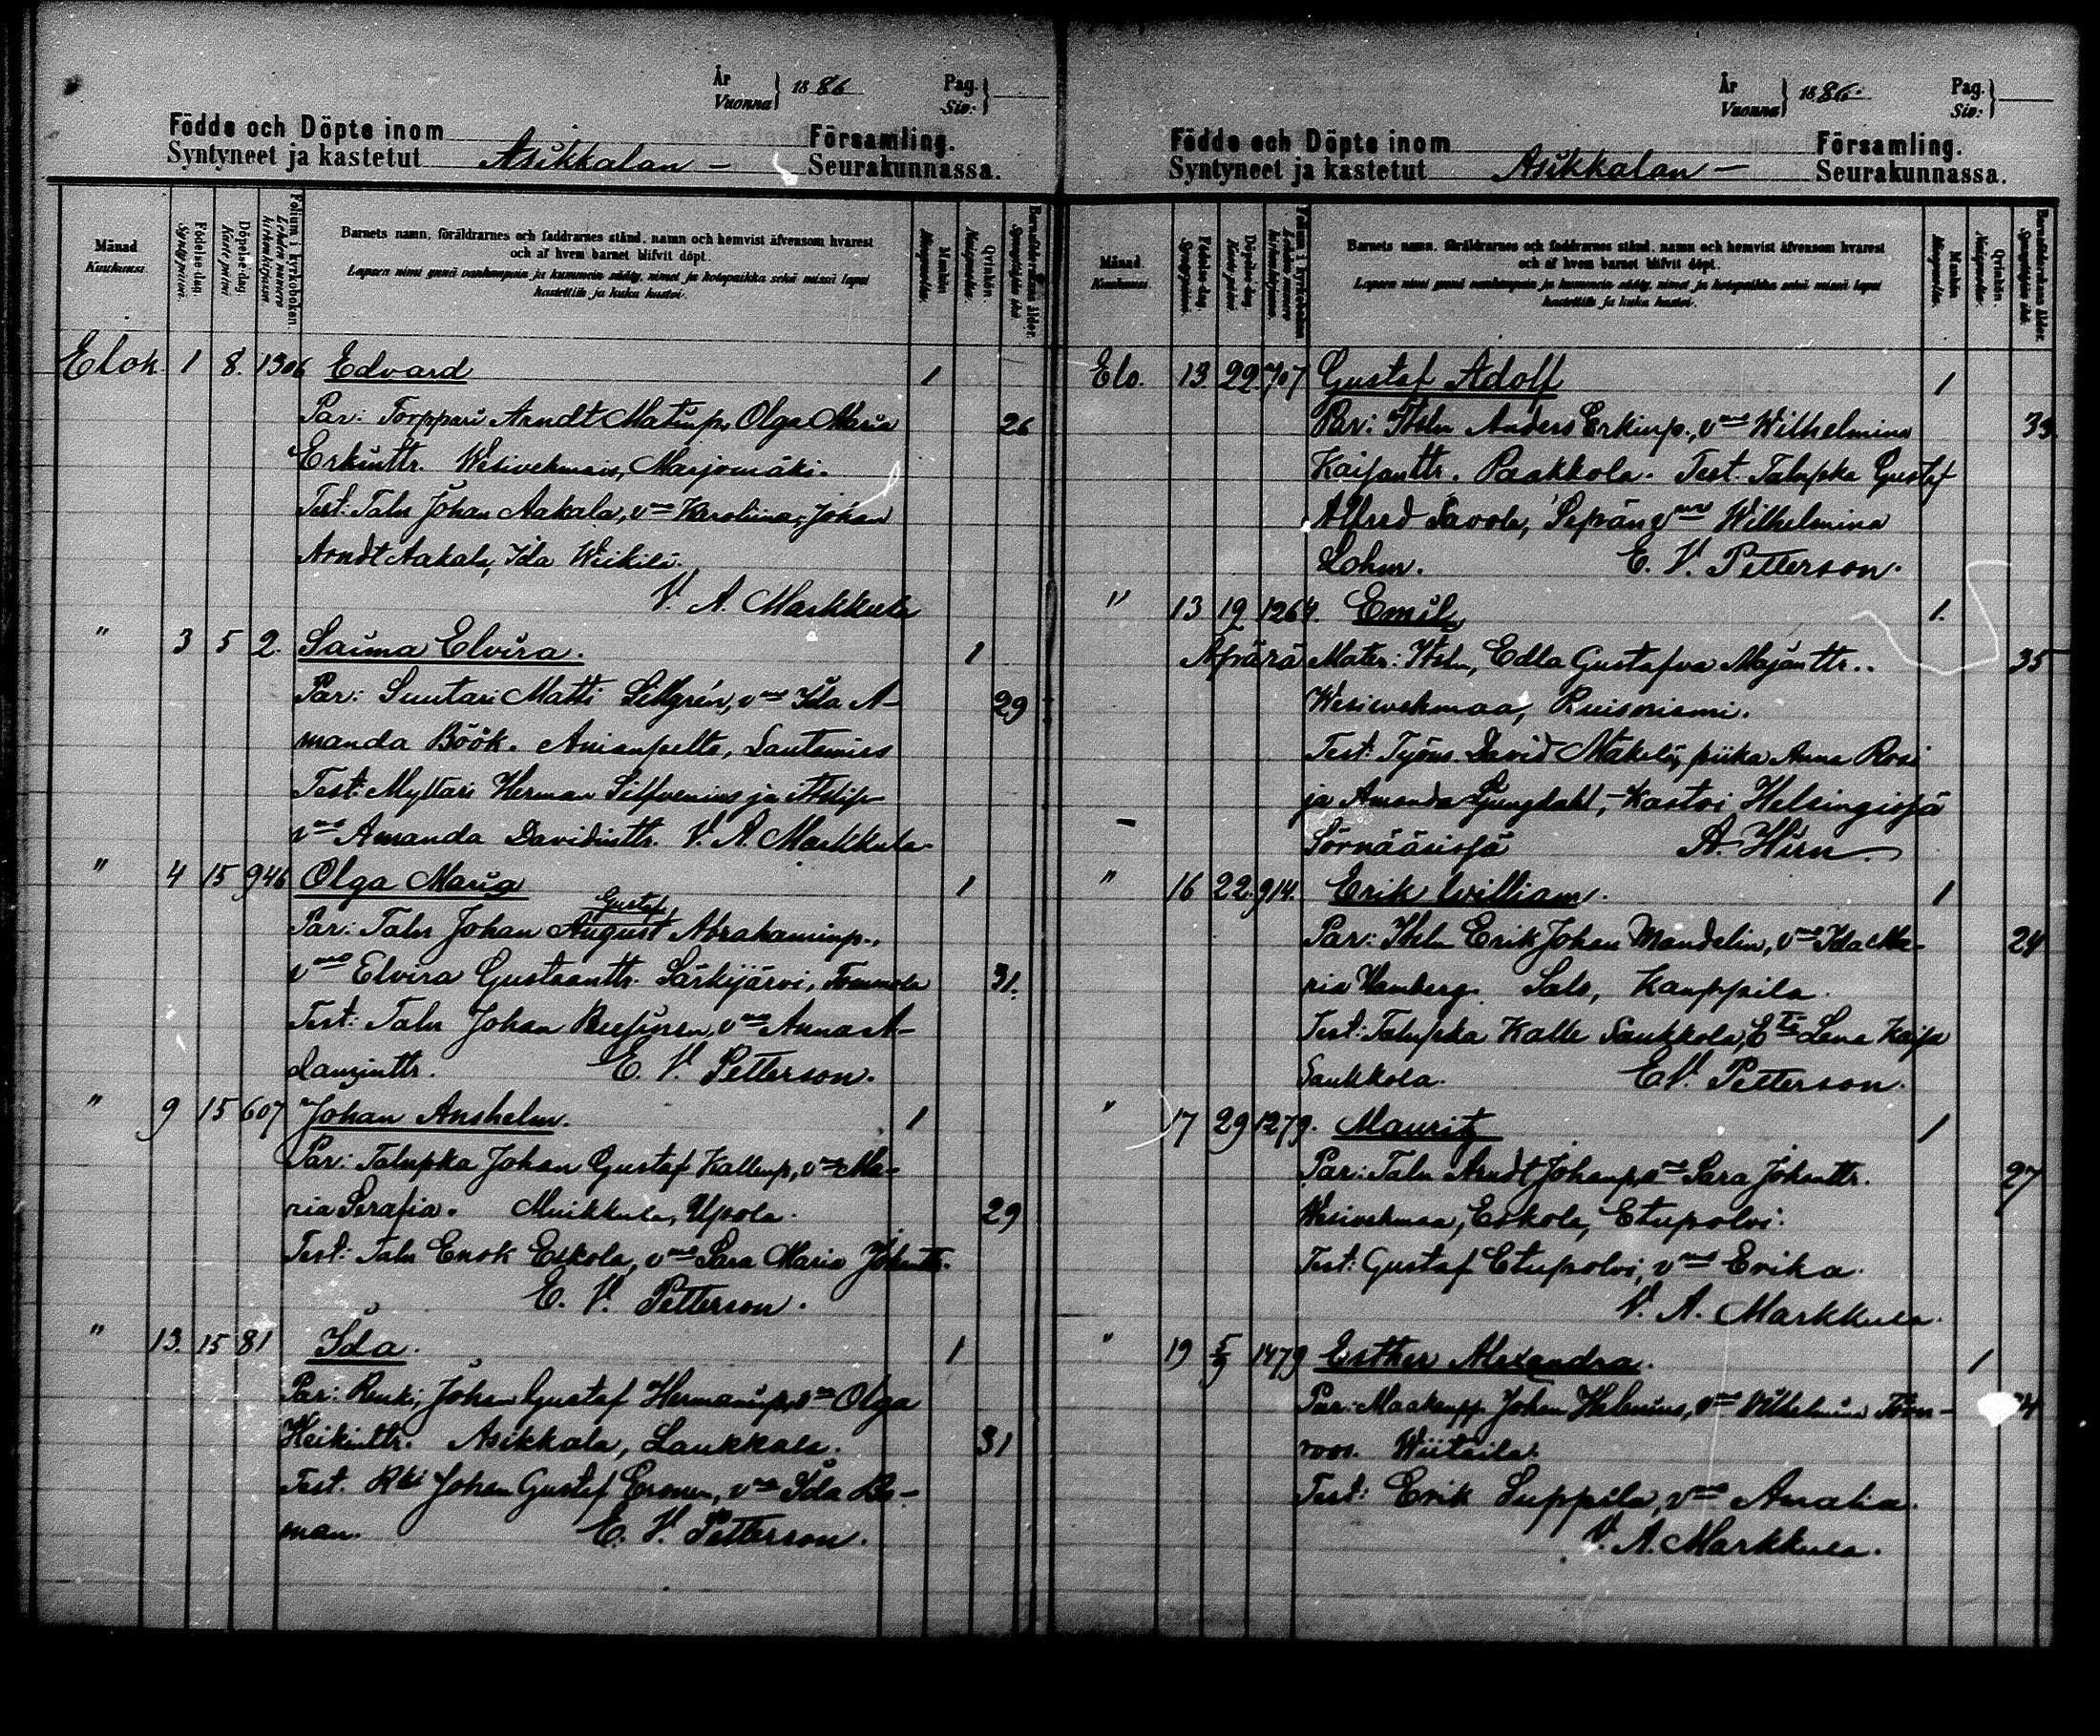 År
Vuonna } 1886
Pag.
Siv: }
Födde och Döpte inom Församling.
Syntyneet ja kastetut Asikkalan – Seurakunnassa.
Månad
Kuukausi.
Födelse-dag.
Syntypäivä.
Döpelse-dag.
Kaste-päivä
Folium i kyrkoboken.
Lehden numero kirkonkirjassa
Barnets namn, föräldrarnes och faddrarnes stånd, namn och hemvist äfvensom hvarest
och af hvem barnet blifvit döpt.
Lapsen nimi ynnä vanhempain ja kummein sääty, nimet ja kotopaikka sekä missä lapsi
kastettiin ja kuka kastoi.
Mankön
Miespuolta.
Qvinkön
Naispuolta.
Barnaföderskans ålder.
Synnyttäjän ikä
Elok 1 8. 1306 Edvard 1
Par: Torppari Arndt Matinp. Olga Maria 26
Erkinttr. Wesivehmais, Marjomäki.
Test: Taln Johan Aakala, vmo Karolina, Johan
Arndt Aakala, Ida Wiikilä.
V. A. Markkula
" 3 5 2. Saima Elvira. 1
Par: Suutari Matti Sellgrén, vmo Ida A- 29
manda Böök. Anianpelto, Lautamies
Test: Mylläri Herman Silfvenius ja
vmo Amanda Davidinttr. V. A. Markkula
" 4 15 946 Olga Maria 1
Gustaf
Par: Taln Johan August Abrahaminp.,
vmo Elvira Gustaantr. Särkijärvi, Tommola 31.
Test: Taln Johan vmo Anna A-
damintr. E. V. Petterson.
" 9 15 607 Johan Anshelm. 1
Par: Talnpka Johan Gustaf Kallenp, vmo Ma-
ria Serafia. Muikkula, Upola. 29
Test: Taln Enok Eskola, vmo Sara Maria Johantr.
E. V. Petterson.
" 13. 15 81 Ida. 1
Par: Renki Johan Gustaf Hermaninp, vmo Olga
Heikintr. Asikkala, Laukkala. 31
Test. Rki Johan Gustaf Eronen, vmo Ida Bo-
man. E. V. Petterson.
År
Vuonna } 1886.
Pag.
Siv: }
Födde och Döpte inom Församling.
Syntyneet ja kastetut Asikkalan – Seurakunnassa.
Månad
Kuukausi.
Födelse-dag.
Syntypäivä.
Döpelse-dag.
Kaste-päivä
Folium i kyrkoboken
Lehden numero kirkonkirjassa
Barnets namn, föräldrarnes och faddrarnes stånd, namn och hemvist äfvensom hvarest
och af hvem barnet blifvit döpt.
Lapsen nimi ynnä vanhempain ja kummein sääty, nimet ja kotopaikka sekä missä lapsi
kastettiin ja kuka kastoi.
Mankön
Miespuolta.
Qvinkön
Naispuolta.
Barnaföderskans ålder.
Synnyttäjän ikä.
Elo. 13 22 707 Gustaf Adolf 1
Par: Itsln Anders Erkinp., vmo Wilhelmina 33.
Kaisantr. Paakkola. Test. Talnpka Gustaf
Alfred Savola, Sepän vmo Wilhelmina
Lohm. E. V. Petterson.
" 13 19 1264. Emil 1.
Äpärä Mater: Itsln, Edla Gustafva Majantr.. 35
Wesivehmaa, Ruisniemi.
Test: Työm. David Mäkelä, piika Anna Rosi
ja Amanda Ljungdahl, – Kastoi Helsingissä
Sörnäärissä A. Hirn.
" 16 22. 914. Erik William. 1
Par: Itsln Erik Johan Mandelin, vmo Ida Ma- 24
ria Wamberg. Salo, Kauppila.
Test: Talnpka Kalle Saukkola, Lena Kaisa
Saukkola. E. V. Petterson.
" 17 29 1279. Mauritz 1
Par: Taln Arndt Johanp, vmo Sara Johantr. 27
Wesivehmaa, Eskola, Etupolvi.
Test: Gustaf Etupolvi, vmo Erika.
V. A. Markkula.
" 19 5/9 1479 Esther Alexandra. 1
Par: Maakaupp. Johan Helenius, vmo Wilhelmina Törn-
roos. Wiitaila.
Test: Erik Suppila, vmo Amalia.
V. A. Markkula.